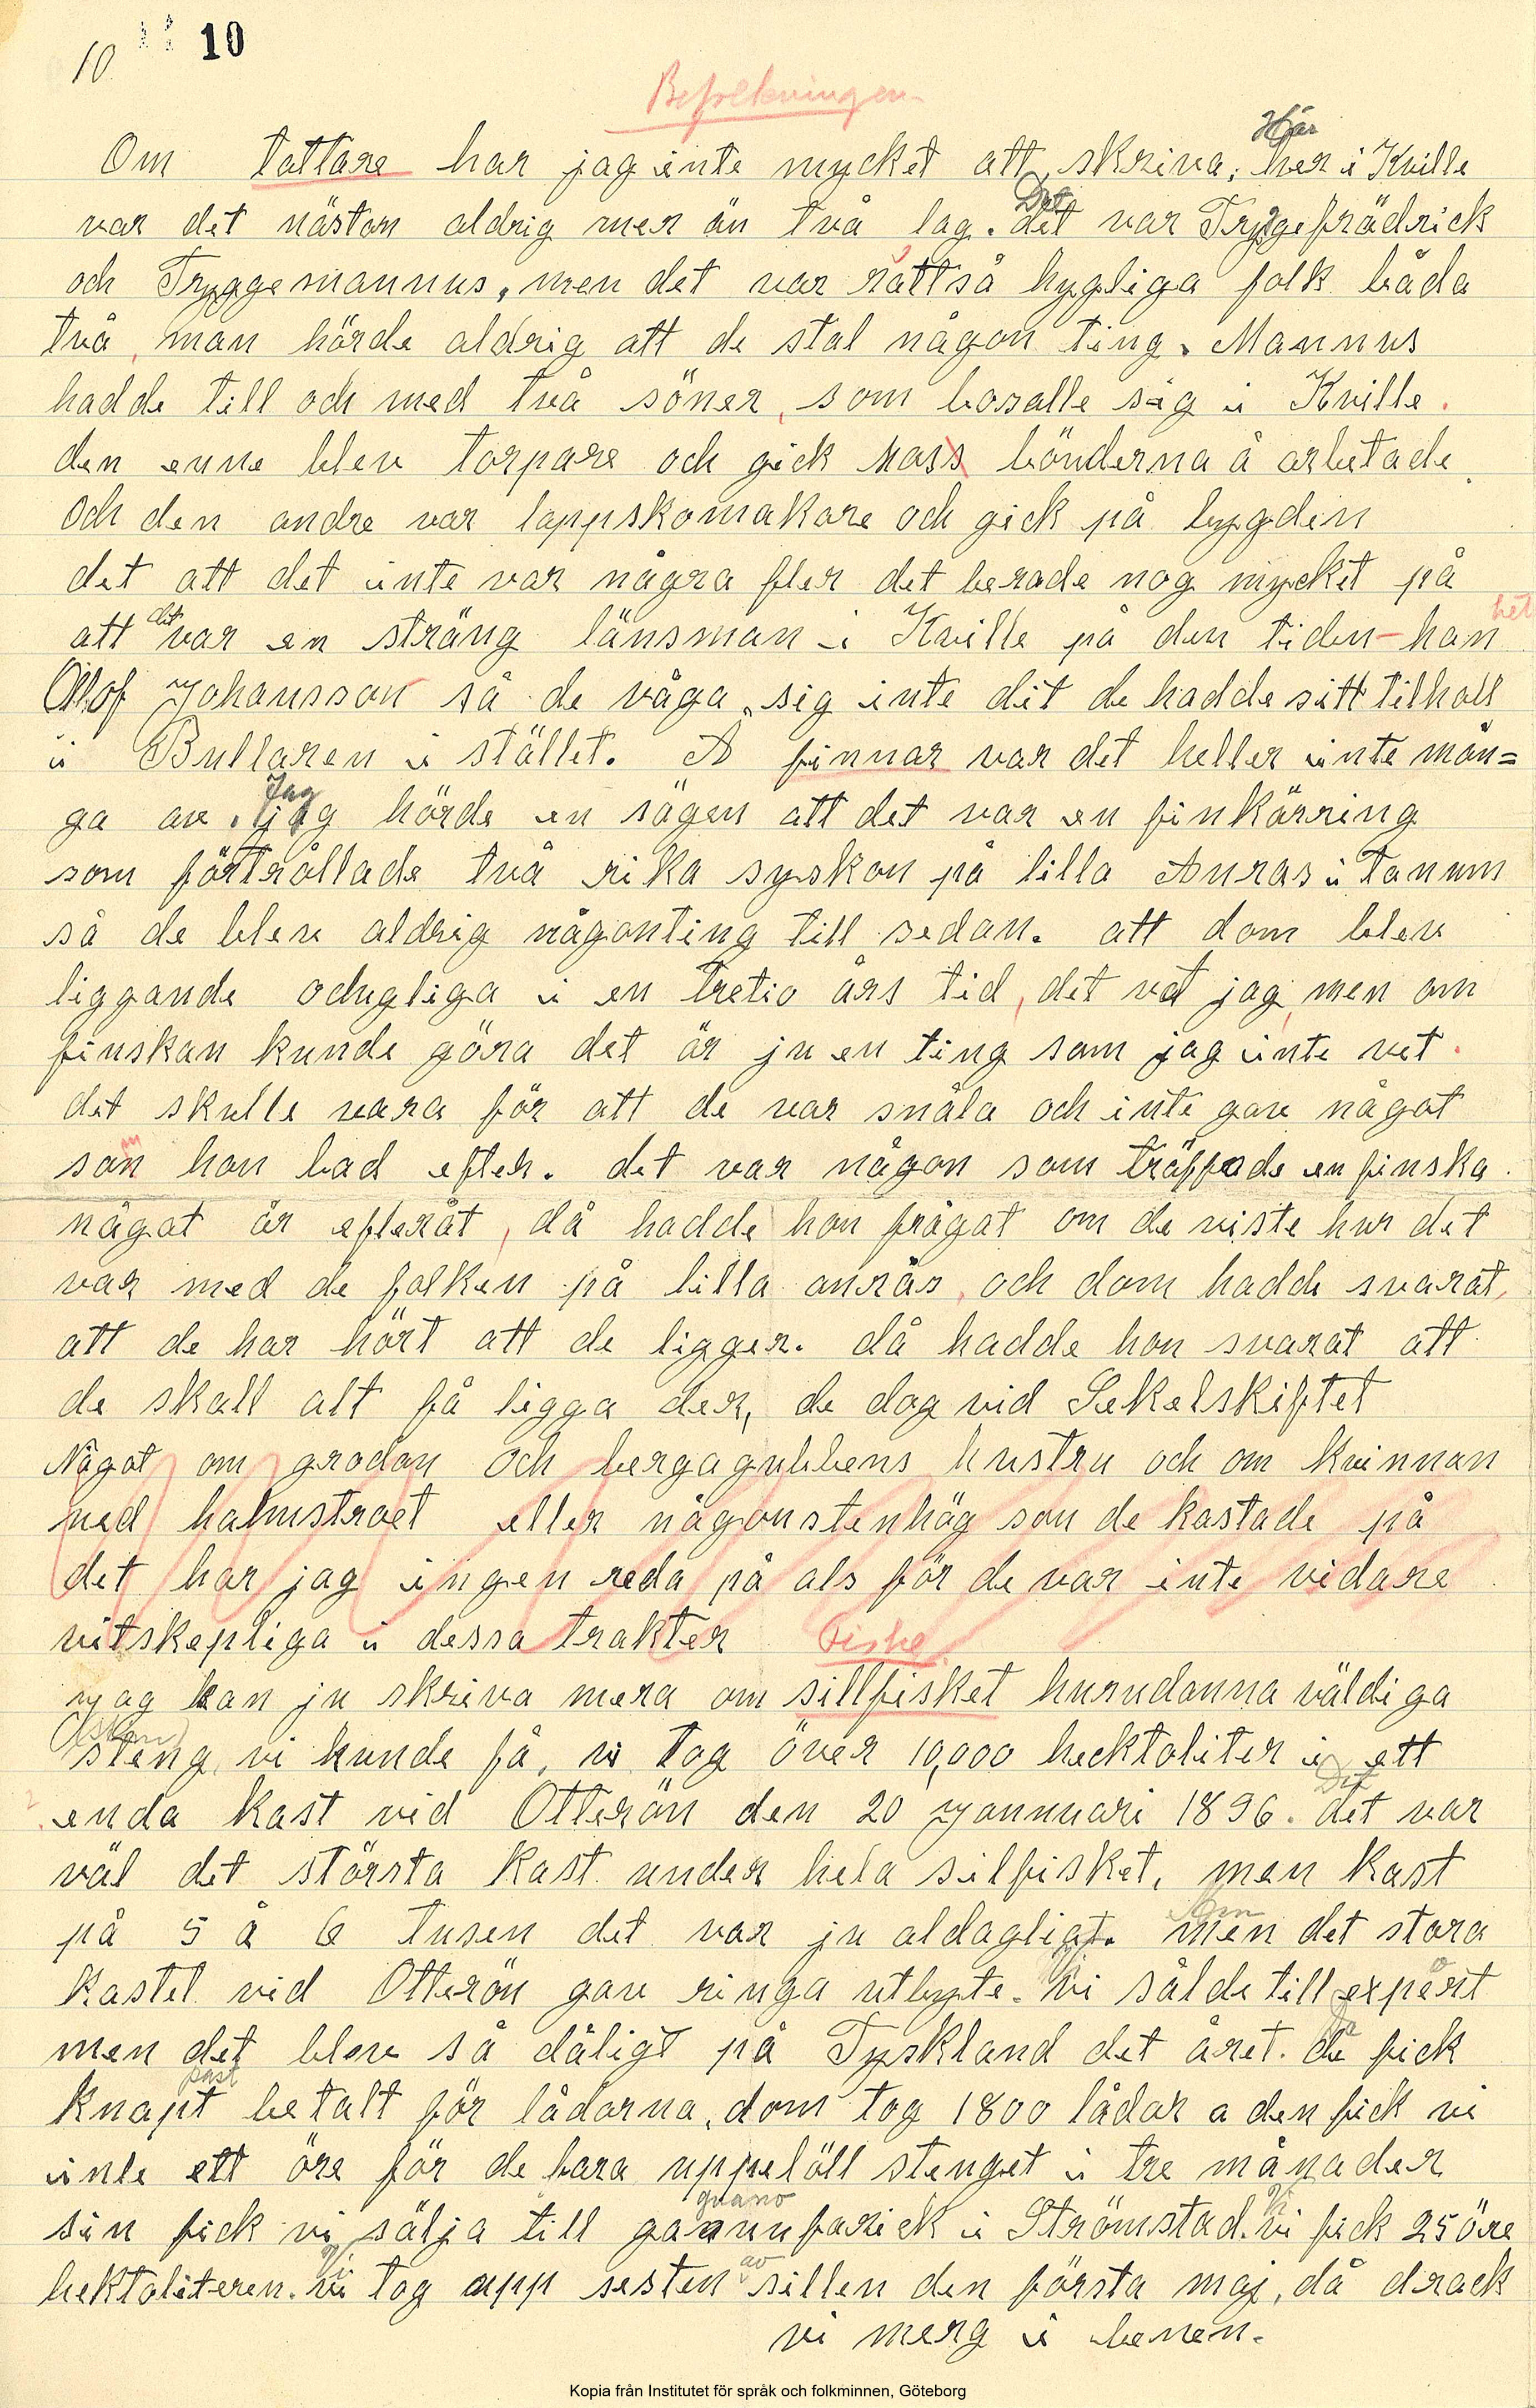 10 10
Befolkningen
Här
Om tattare har jag inte mycket att skriva; her i Kville
Det
var det nästan aldrig mer än två lag. det var Tryggefrädrick
och Tryggemannus, men det var rättså hygliga folk båda
två, man hörde aldrig att de stal någon ting. Mannus
hadde till och med två söner, som bosalle sig i Kville.
den enne blev torpare och gick hass bönderna å arbetade
och den andre var lappskomakare och gick på bygden
det att det inte var några fler det berode nog mycket på
det het
att var en sträng länsman i Kville på den tiden – han
Olof Johansson så de våga sig inte dit de hadde sitt tilhall
i Bullaren i stället. A finnar var det heller inte mån=
Jag
ga av. jag hörde en sägen att det var en finkärring
som förtrållade två rika syskon på lilla Anras i Tanum
så de blev aldrig någonting till sedan. att dom blev
liggande odugliga i en tretio års tid, det vet jag, men om
finskan kunde göra det är ju en ting som jag inte vet.
det skulle vara för att de var snåla och inte gav något
m
son hon bad efter. det var någon som träffade en finska
något år efteråt, då hadde hon frågat om de viste hur det
var med de folken på lilla anrås, och dom hadde svarat,
att de har hört att de ligger. då hadde hon svarat att
de skall alt få ligga der, de dog vid Sekelskiftet
Något om grodan och bergagubbens hustru och om kvinnan
med halmstraet eller någon stenhög son de kastade på
det har jag ingen reda på als för de var inte vidare
vitskepliga i dessa trakter Fiske
jag kan ju skriva mera om sillfisket hurudanna väldiga
steng vi kunde få, vi tog över 10,000 hecktoliter i ett
Det
enda kast vid Otterön den 20 jannuari 1896. det var
väl det största kast under hela silfisket, men kast
på 5 å 6 tusen det var ju aldagligt. men det stora
Vi o
kastet vid Otterön gav ringa utbyte. vi sålde till expårt
men det blev så dåligt på Tyskland det året. de fick
knapt betalt för lådorna, dom tog 1800 lådar a den fick vi
inte ett öre för de bara uppelöll stenget i tre månader
guano Vi
sin fick vi sälja till gaanunfarick i Strömstad. vi fick 25 öre
Vi av
hektoliteren. vi tog upp sesten sillen den första maj, då drack
vi merg i benen.
Kopia från Institutet för språk och folkminnen, Göteborg